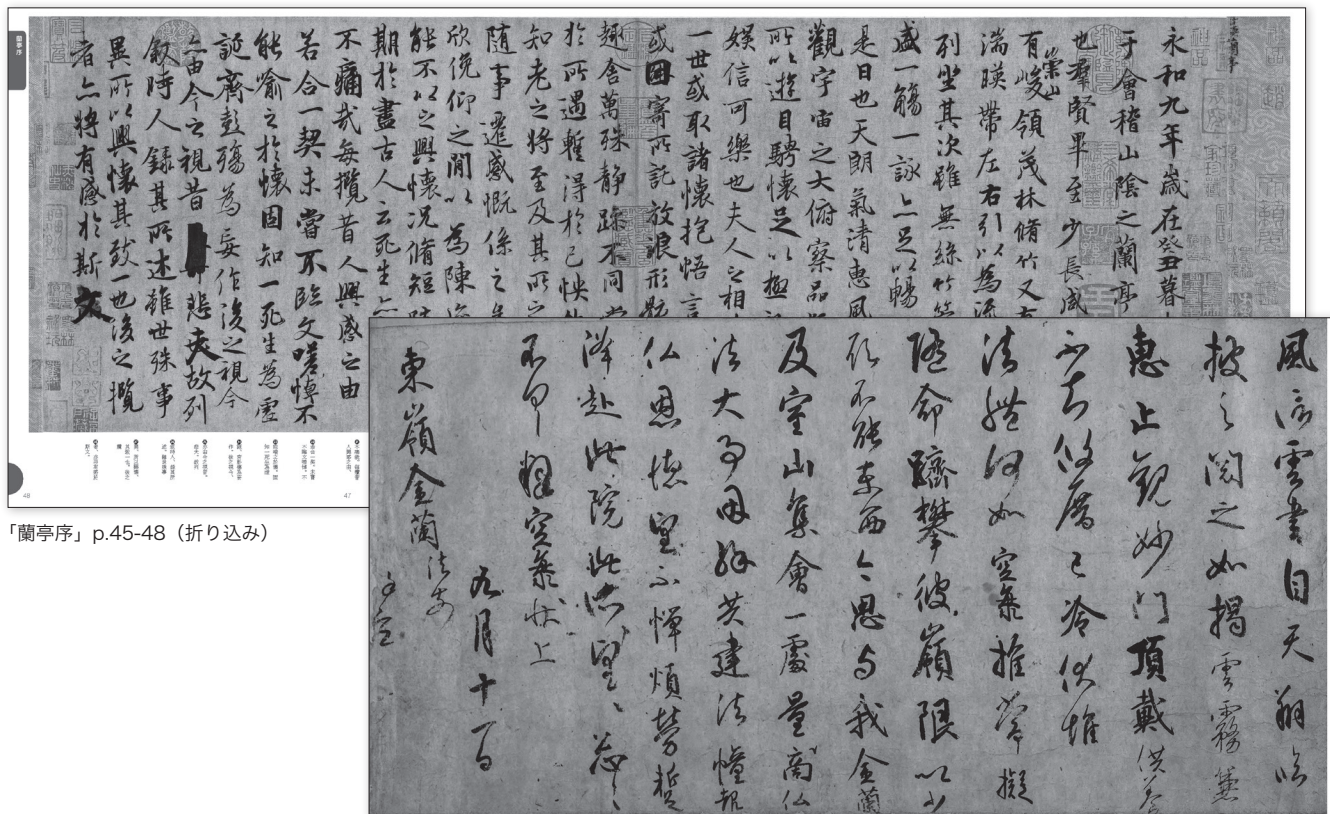 蘭亭序
永和九年歳在癸丑暮
于會稽山陰之蘭亭
也羣賢畢至少長咸
有崇山峻領茂林脩竹又有
湍暎帶左右引以為流
列坐其次雖無絲竹管
盛一觴一詠亦足以暢
是日也天朗氣清惠風
觀宇宙之大俯察品
所以遊目騁懷足以極
娛信可樂也夫人之相
一世或取諸懷抱悟言
或因寄所託放浪形骸
趣舍萬殊静躁不同當
於所遇暫得於己怏然
知老之將至及其所之
随事遷感慨係之矣
欣俛仰之閒以為陳迹
能不以之興懷況脩短随
期於盡古人云死生亦
不痛哉每攬昔人興感之由
若合一契未嘗不臨文嗟悼不
能喻之於懷固知一死生為虛
誕齊彭殤為妄作後之視今
亦由今之視昔悲夫故列
敘時人錄其所述雖世殊事
異所以興懷其致一也後之攬
者亦將有感於斯文
48
47
「蘭亭序」p.45-48（折り込み）
風信雲書自天翔臨
披之閲之如揭雲霧兼
惠止觀妙門頂戴供養
不知攸厝已冷伏惟
法體何如空海推常擬
隨命躋攀彼嶺限以少
願不能東西今思与我金蘭
及室山集會一處量商仏
法大事因縁共建法幢報
仏恩徳望不憚煩勞蹔
降赴此院此所望々々忩々
不具釋空海狀上
九月十一日
東嶺金蘭法前
謹空